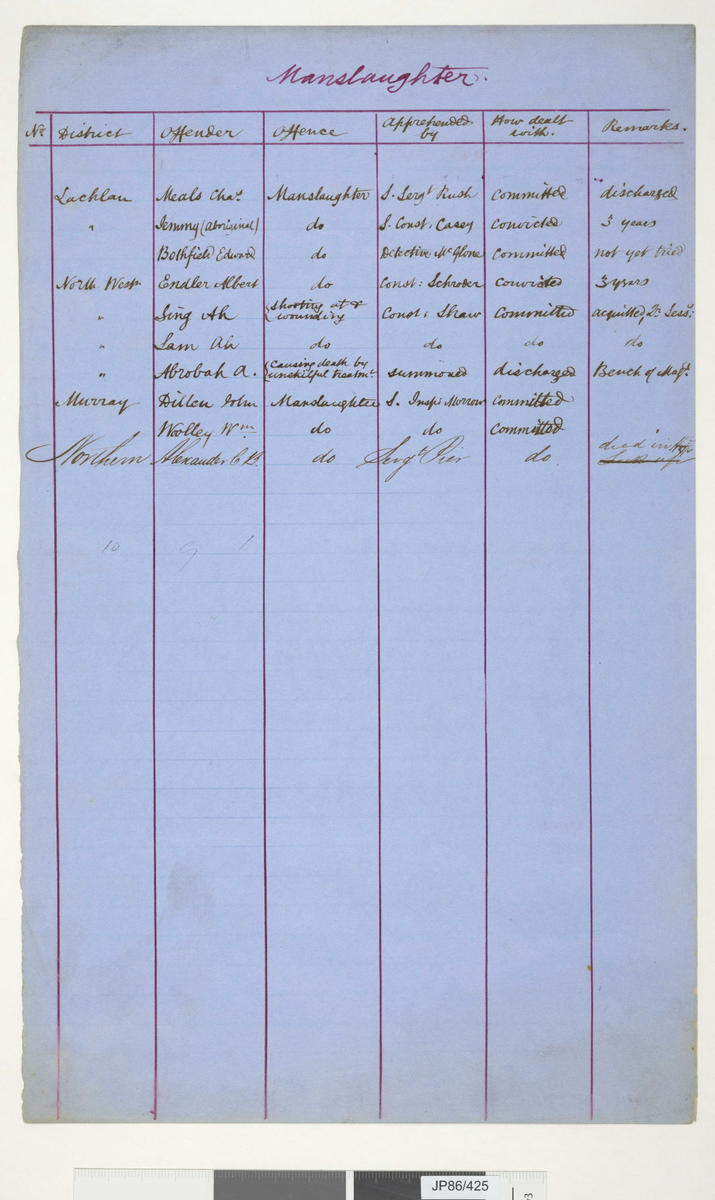 Manslaughter.
No District Offender Offence Apprehended by How dealt with. Remarks.
Lachlan Meals Chas. Manslaughter S. Sergt Rush committed discharged
" Jemmy (aboriginal) do S. Const. Casey convicted 3 years
Bothfield Edward do Detective McGlone committed not yet tried
North Westn Endler Albert do Const: Schroder convicted 3 years
" Sing Ah {shooting at & wounding Const: Shaw committed acquitted, Qr Sesss:
" Sam Ah do do do do
" Abrobah A. {causing death by unskilful treatmt summoned discharged Bench of Magts.
Murray Dillen John Manslaughter S. Inspr Morrow committed
Woolley Wm do do committed
Northern Alexander C. do Sergt Pier do died in
10 9 1
JP86/425